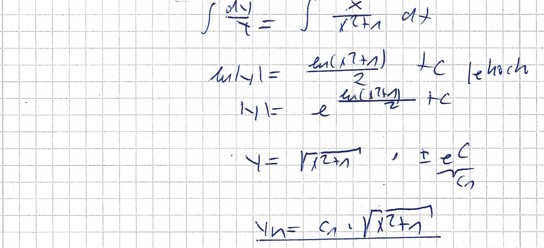 ∫ dy/y = ∫ x/(x²+1) dx
ln|y| = ln(x²+1)/2 + C | e hoch
|y| = e^(ln(x²+1)/2 + C)
y = √(x²+1) · ± e^C
C₁
yₕ = C₁ · √(x²+1)